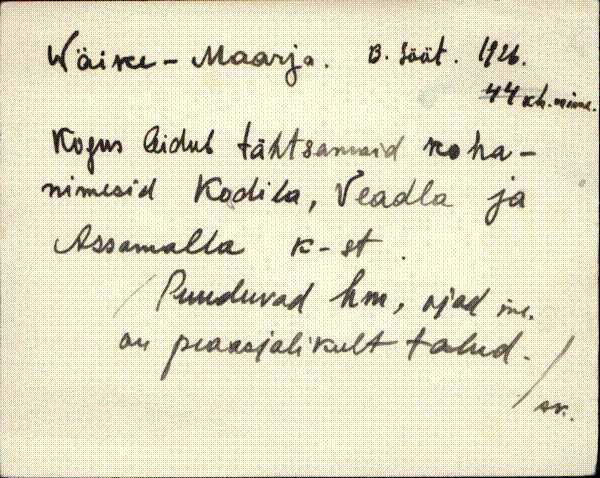 Wäike-Maarja. B. Söөt. 1926.
44 kh. nime.
Kogus sidub tähtsamaid koha-
nimesid Kodila, Veadla ja
Assamalla k-st.
Puuduvad hm, ojad jne.
on peaasjalikult talud.